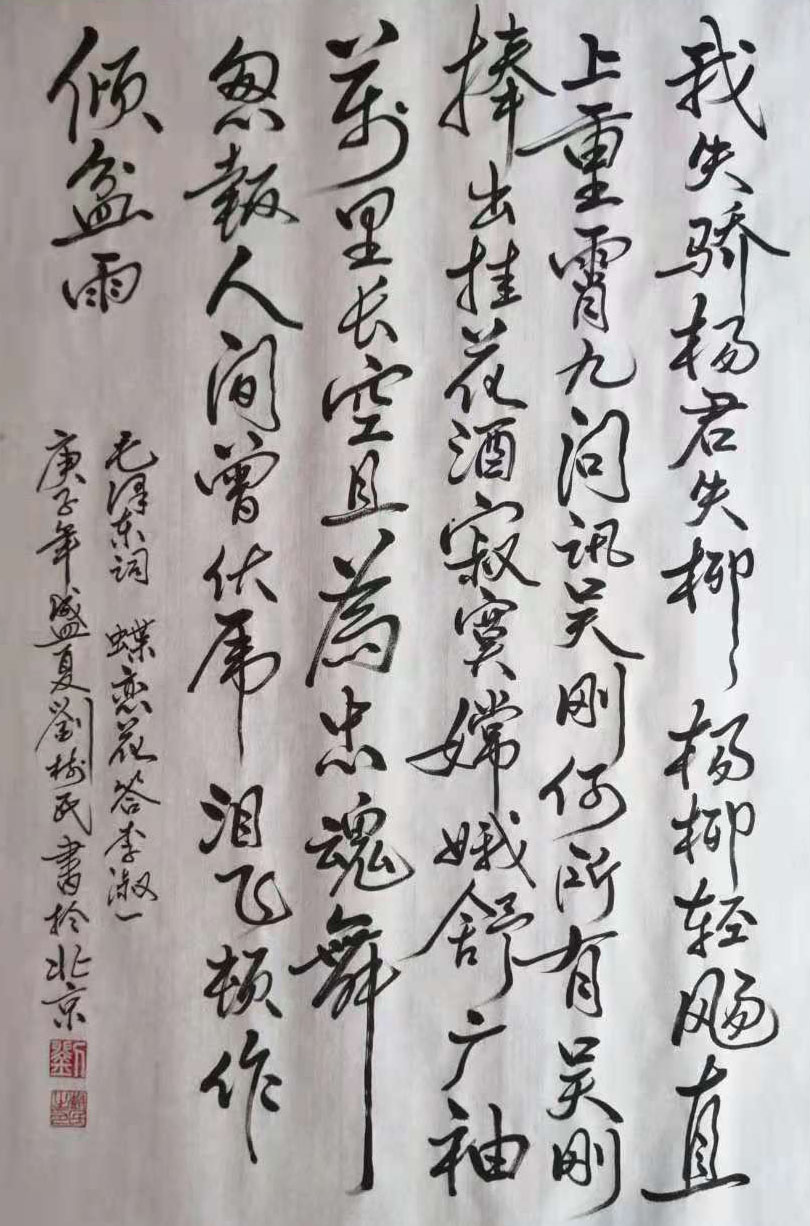 我失骄杨君失柳杨柳轻飏直
上重霄九问讯吴刚何所有吴刚
捧出桂花酒寂寞嫦娥舒广袖
万里长空且为忠魂舞
忽报人间曾伏虎泪飞顿作
倾盆雨
毛泽东词 蝶恋花答李淑一
庚子年盛夏劉树民書於北京